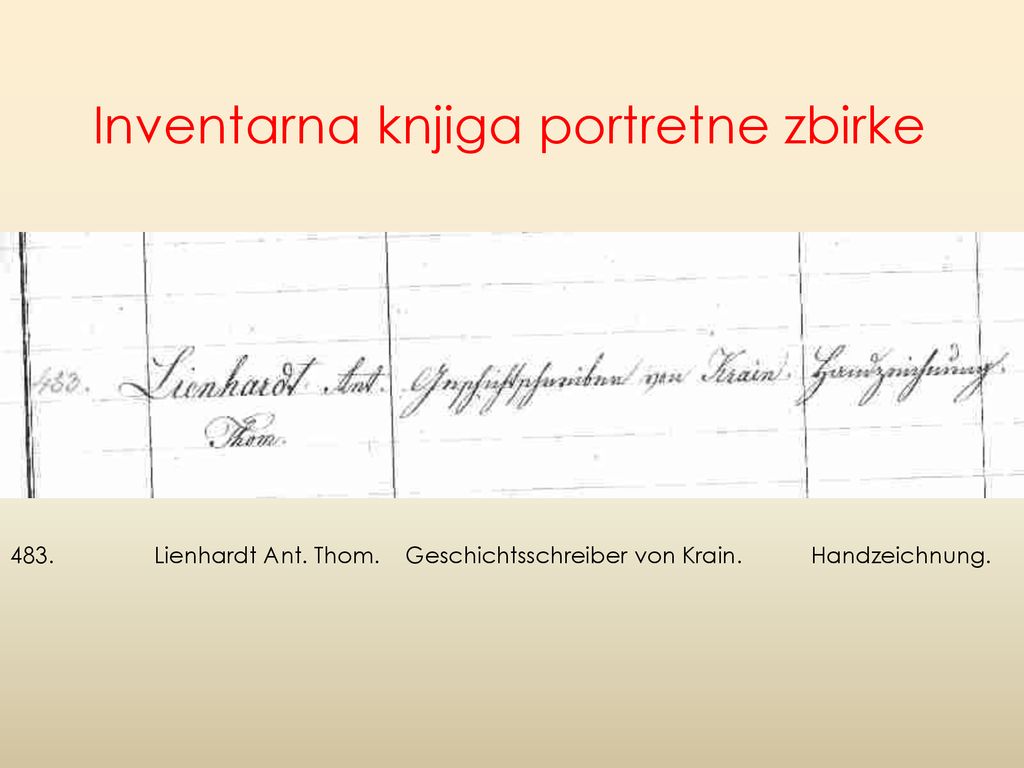 Inventarna knjiga portretne zbirke
483. Lienhardt Ant. Geschichtschreiber von Krain. Handzeichnung.
Thom.
483. Lienhardt Ant. Thom. Geschichtsschreiber von Krain. Handzeichnung.